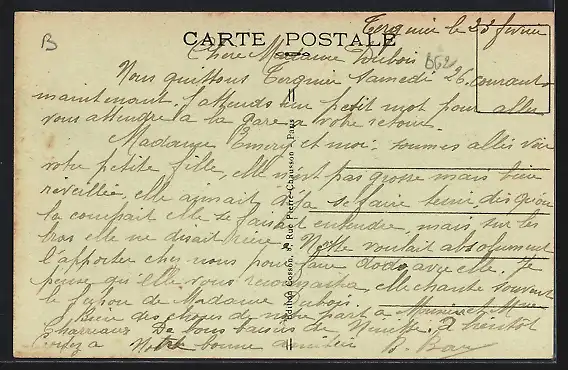 Tergnier le 23 février
B
CARTE POSTALE
Chère Madame Dubois
Nous quittons Tergnier Samedi 26 courant
maintenant. J'attends un petit mot pour aller
vous attendre a la gare a votre retour.
Madame Emery et moi. sommes allés voir
votre petite fille, elle n'est pas grosse mais bien
reveillée, elle aimait déja se faire tenir dès qu'on
la couchait elle se faisait entendre, mais, sur les
bras elle ne disait rien. voulait absolument
l'apporter chez nous pour faire dodo avec elle. Je
pense qu'elle vous reconnaitra, elle chante souvent
le jupon de Madame Dubois.
Bien des choses de notre part a Monsieur et Mme
Charriaux De bons baisers de A bientôt
a Notre bonne amitié B.
Edition Cosson, 8, Rue Pierre-Chausson - Paris